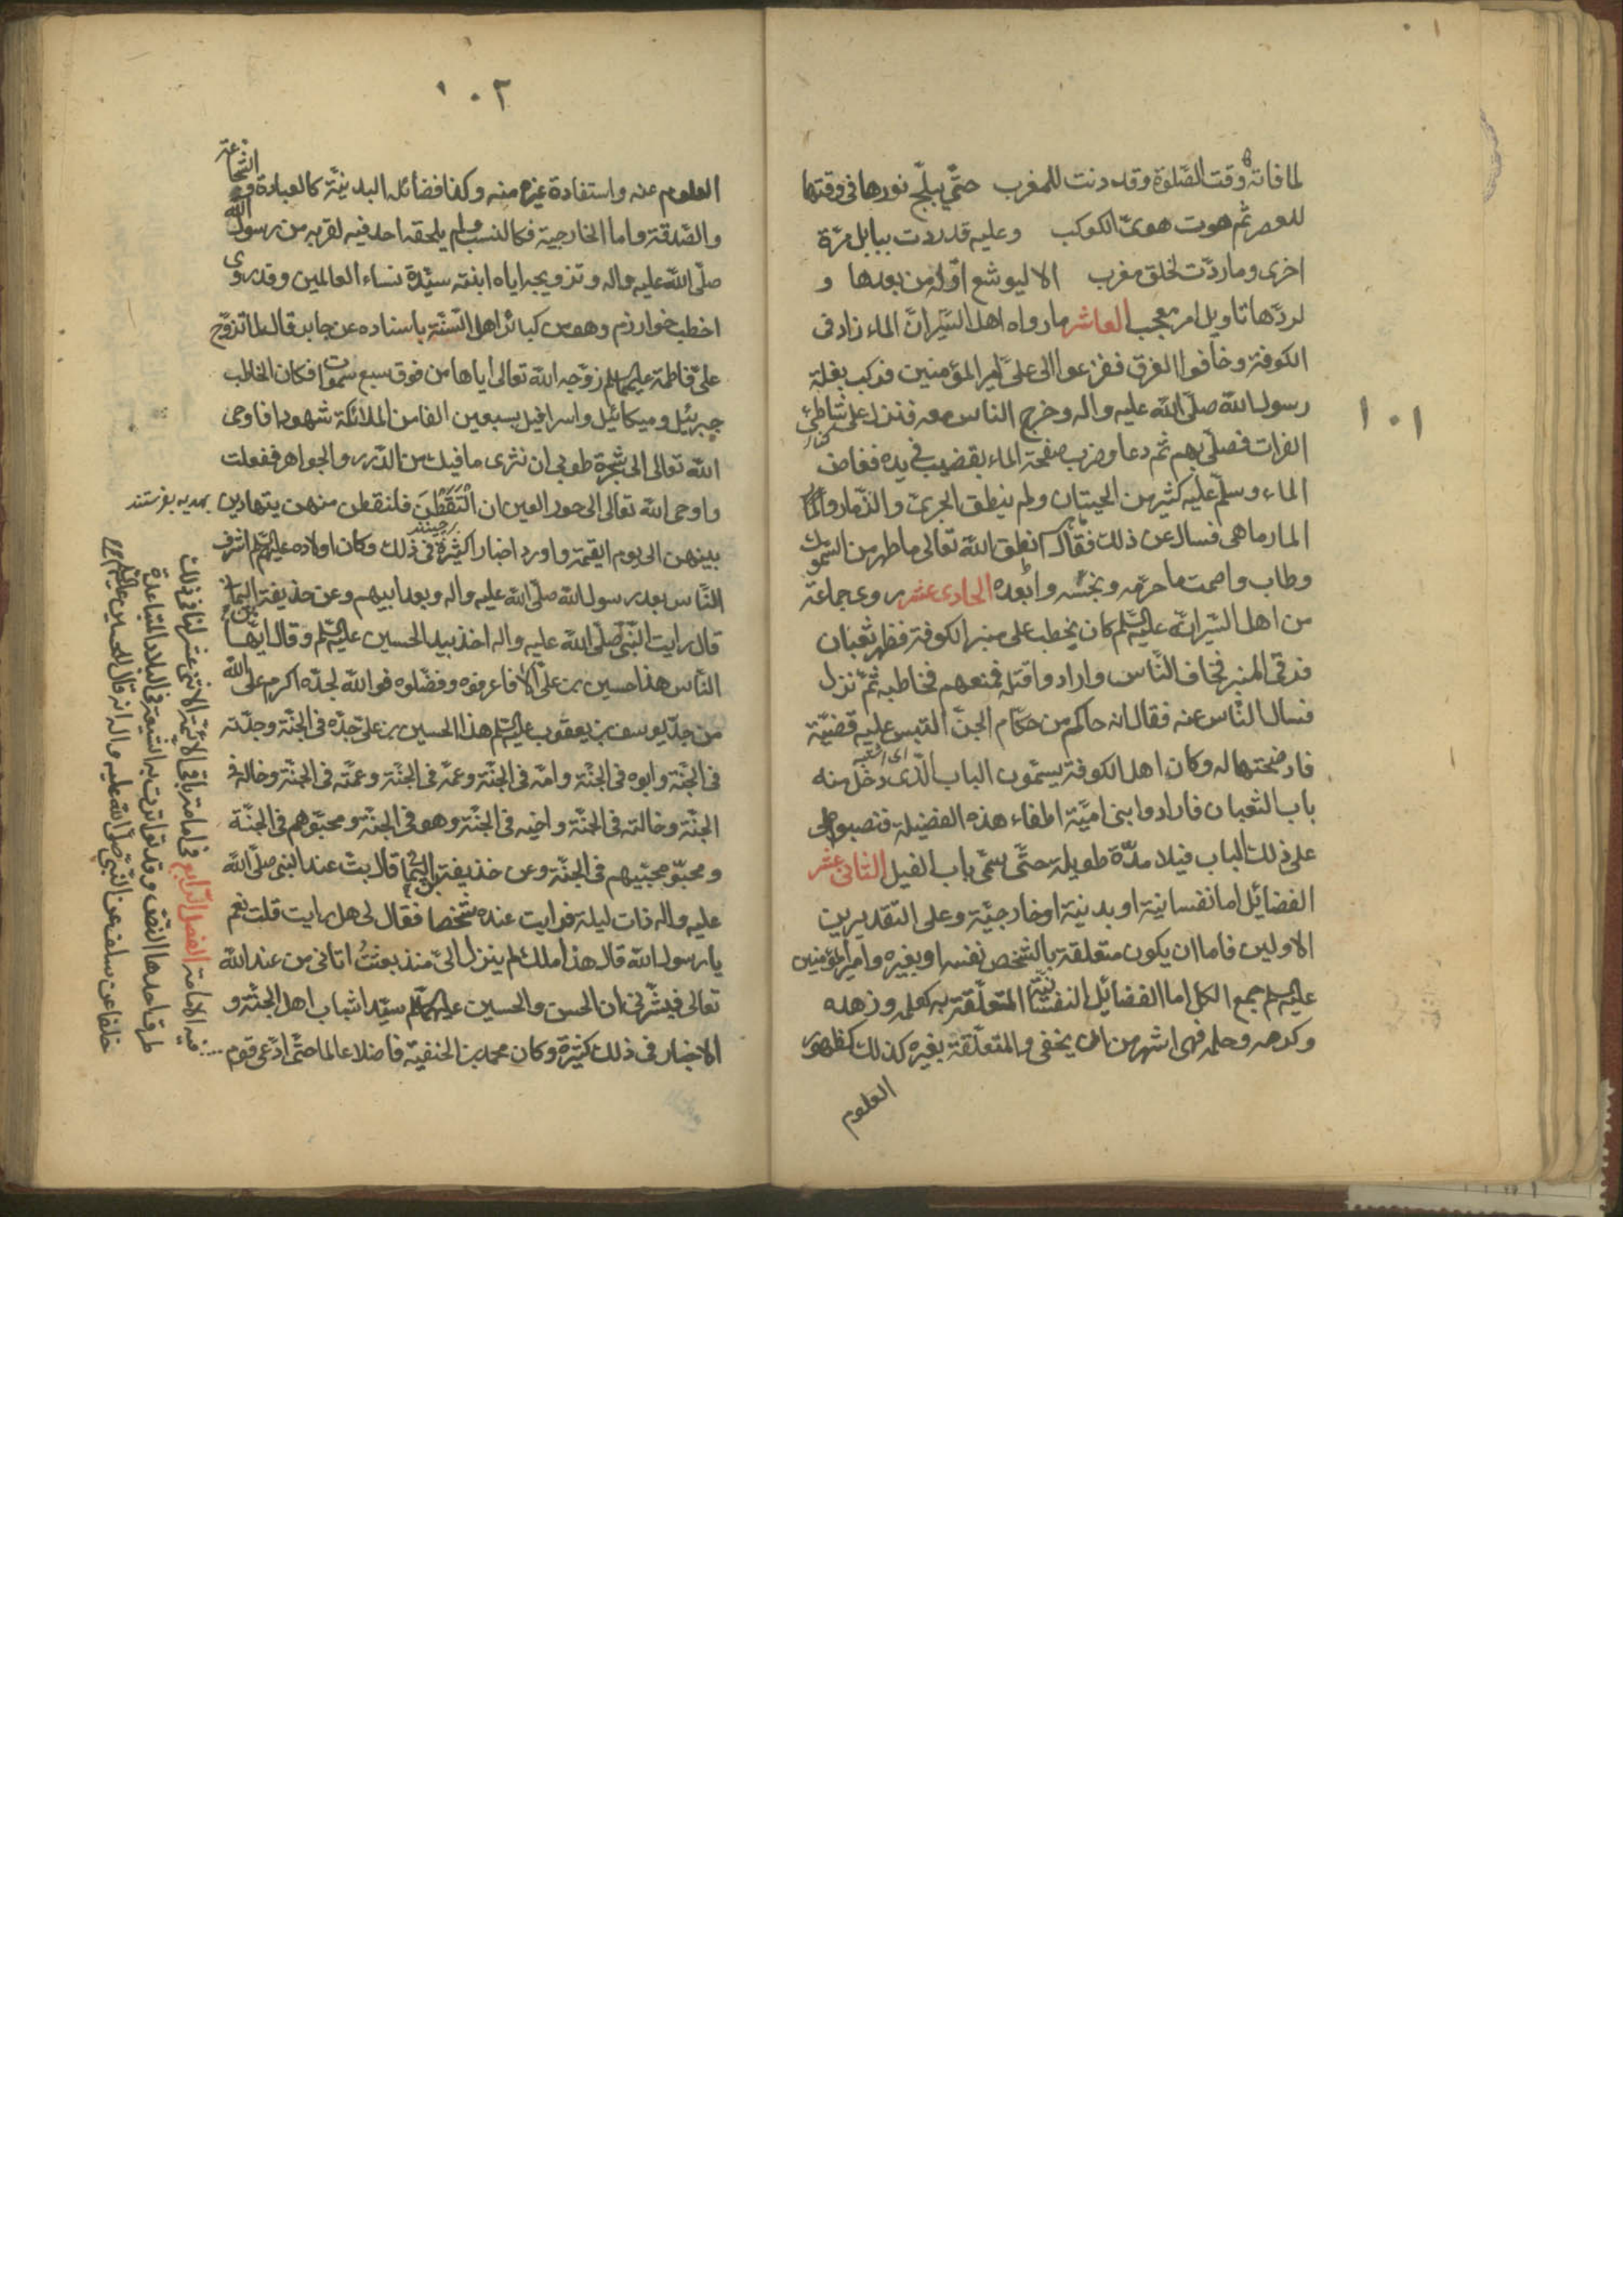 ١٠١
لما فاته وقت الصّلوة وقد دنت للمغرب حتّى تبلّج نورها فى وقتها
للعصر ثم هوت هوىّ الكوكب وعليه قد ردت ببابل مرّة
اخرى وما ردّت لخلق مغرب الا ليوشع اوله من بعدها و
لردّها تاويل امر معجب العاشر ما رواه اهل السّير انّ الماء زاد فى
الكوفة وخافوا الغرق ففزعوا الى علىّ امير المؤمنين فركب بغلة
رسول الله صلّى الله عليه واله وخرج الناس معه فنزل على شاطئ
كنار
الفرات فصلّى بهم ثم دعا وضرب صفحة الماء بقضيب فى يده فغاض
الماء وسلّم عليه كثير من الحيتان ولم ينطق الجرىّ والزّمار و
المارماهى فسال عن ذلك فقال انطق الله تعالى ما طهر من السّموك
وطاب واصمت ما حرّمه ونجسّه وابعده الحادى عشر روى جماعة
من اهل السّير انّه عليه السّلم كان يخطب على منبر الكوفة فظهر ثعبان
فرقى المنبر فخاف النّاس وارادوا قتله فمنعهم فخاطبه ثمّ نزل
فسال النّاس عنه فقال انه حاكم من حكّام الجنّ التبس عليه قضيّة
فاوضحتها له وكان اهل الكوفة يسمّون الباب الّذى دخل منه
باب الثعبان فارادوا بنى اميّة اطفاء هذه الفضيلة فنصبوا
على ذلك الباب فيلا مدّة طويلة حتّى سمّى باب الفيل الثانى عشر
الفضائل اما نفسانية او بدنية او خارجيّة وعلى التقديرين
الاولين فاما ان يكون متعلقة بالشّخص نفسه او بغيره وامير المؤمنين
عليه السلم جمع الكل اما الفضائل النفسانيّة المتعلّقة به كعلمه وزهده
وكرمه وحلمه فهى اشهر من ان يخفى والمتعلّقة بغيره كذلك كظهور
العلوم
١٠٢
العلوم عنه واستفادة غيره منه وكذا فضائله البدنيّة كالعبادة والشّجاعة
والصّدقة واما الخارجية فكالنسب ولم يلحقه احد فيه لقربه من رسول الله
صلّى الله عليه واله وتزويجه اياه ابنته سيّدة نساء العالمين وقد روى
اخطب خوارزم وهو من كبائر اهل السّنّة باسناده عن جابر قال لما تزوّج
علىّ فاطمة عليهما السلم زوّجه الله تعالى اياها من فوق سبع سموات وكان الخاطب
جبرئيل وميكائيل واسرافيل بسبعين الفا من الملائكة شهودا فاوحى
الله تعالى الى شجرة طوبى ان نثرى ما فيك من الدّرر والجواهر ففعلت
واوحى الله تعالى الى حور العين ان الْتَقِطْنَ فلتقطن منهن يتهادين بهديه بفرستند
برچينند
بينهن الى يوم القيمة واورد اخبارا كثيرة فى ذلك وكان اولاده عليهم السلم اشرف
النّاس بعد رسول الله صلّى الله عليه واله وبعد ابيهم وعن حذيفة اليمان
قال رايت النّبى صلّى الله عليه واله اخذ بيد الحسين عليه السّلم وقال ايّها
النّاس هذا حسين بن علىّ الا فاعرفوه وفضّلوه فوالله لجدّه اكرم على الله
من جدّ يوسف بن يعقوب عليه السّلم هذا الحسين بن علىّ جدّه فى الجنّة وجدّته
فى الجنّة وابوه فى الجنّة وامّه فى الجنّة وعمّه فى الجنّة وعمّته فى الجنّة وخاله فى
الجنّة وخالته فى الجنّة واخيه فى الجنّة وهو فى الجنّة ومحبّوهم فى الجنّة
ومحبّو محبّيهم فى الجنّة وعن حذيفة بن اليمان قال بتّ عند النبى صلّى الله
عليه واله ذات ليلة فرايت عنده شخصا فقال لى هل رايت قلت نعم
يا رسول الله قال هذا ملك لم ينزل الىّ منذ بعثتُ اتانى من عند الله
تعالى فبشّرنى ان الحسن والحسين عليهما السّلم سيّدا شباب اهل الجنّة و
الاخبار فى ذلك كثيرة وكان محمد بن الحنفية فاضلا عالما حتّى ادّعى قوم
فيه الامامة الفصل الرابع فى امامة باقى الائمّة الاثنى عشر لنا فى ذلك
طرق احدها النّصّ وقد تواترت به الشيعة فى البلاد المتباعدة
خلفا عن سلف عن النّبىّ صلّى الله عليه واله انه قال للحسين عليه السّلم